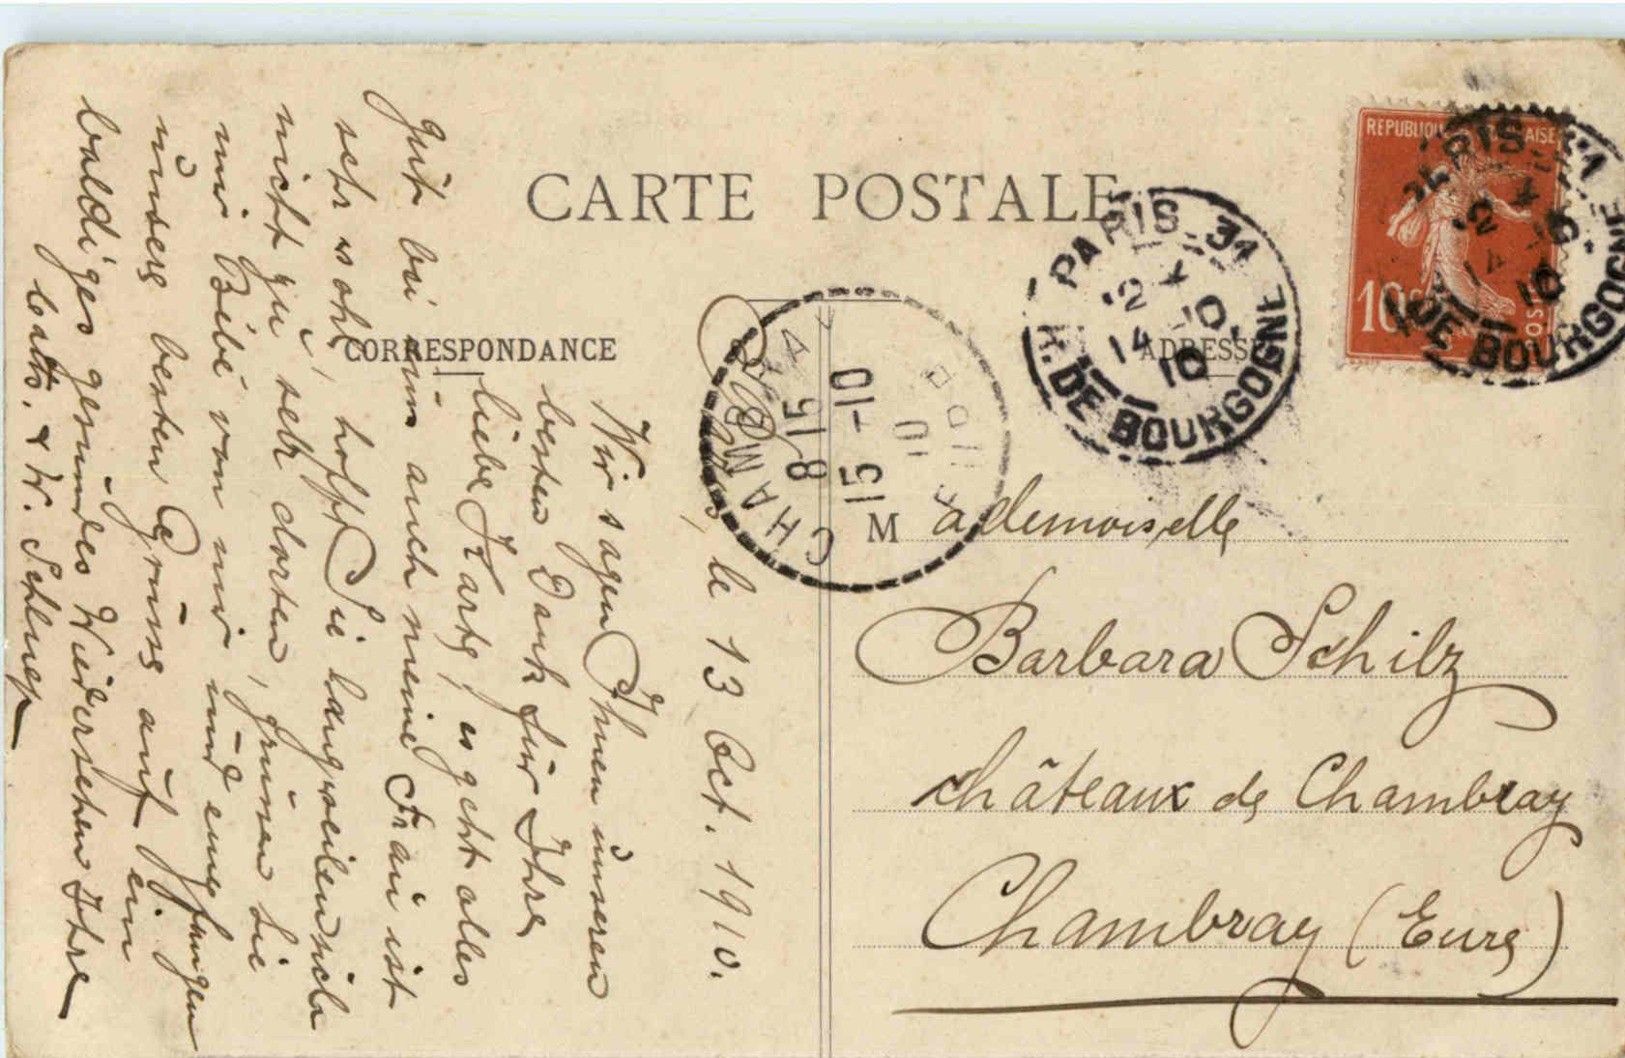 CARTE POSTALE
CORRESPONDANCE
ADRESSE
REPUBLIQUE FRANÇAISE
10c
POSTES
PARIS 31
12
14 -10.
10
R. DE BOURGOGNE
PARIS 31
14
10
R. DE BOURGOGNE
CHAMBRAY
8 15
15 -10
10
EURE
Paris, le 13 Oct. 1910.
Wir sagen Ihnen unseren
besten Dank für Ihre
liebe Karte, es geht alles
gut bei uns auch meine Frau ist
sehr wohl, hofft Sie langweilen sich
nicht zu sehr dorten, grüssen Sie
mir Bébé von mir und empfangen
unsere besten Grüsse auf ein
baldiges gesundes Wiedersehen Ihre
Cath. & W. Schluep
Mademoiselle
Barbara Schilz
châteaux de Chambray
Chambray (Eure)